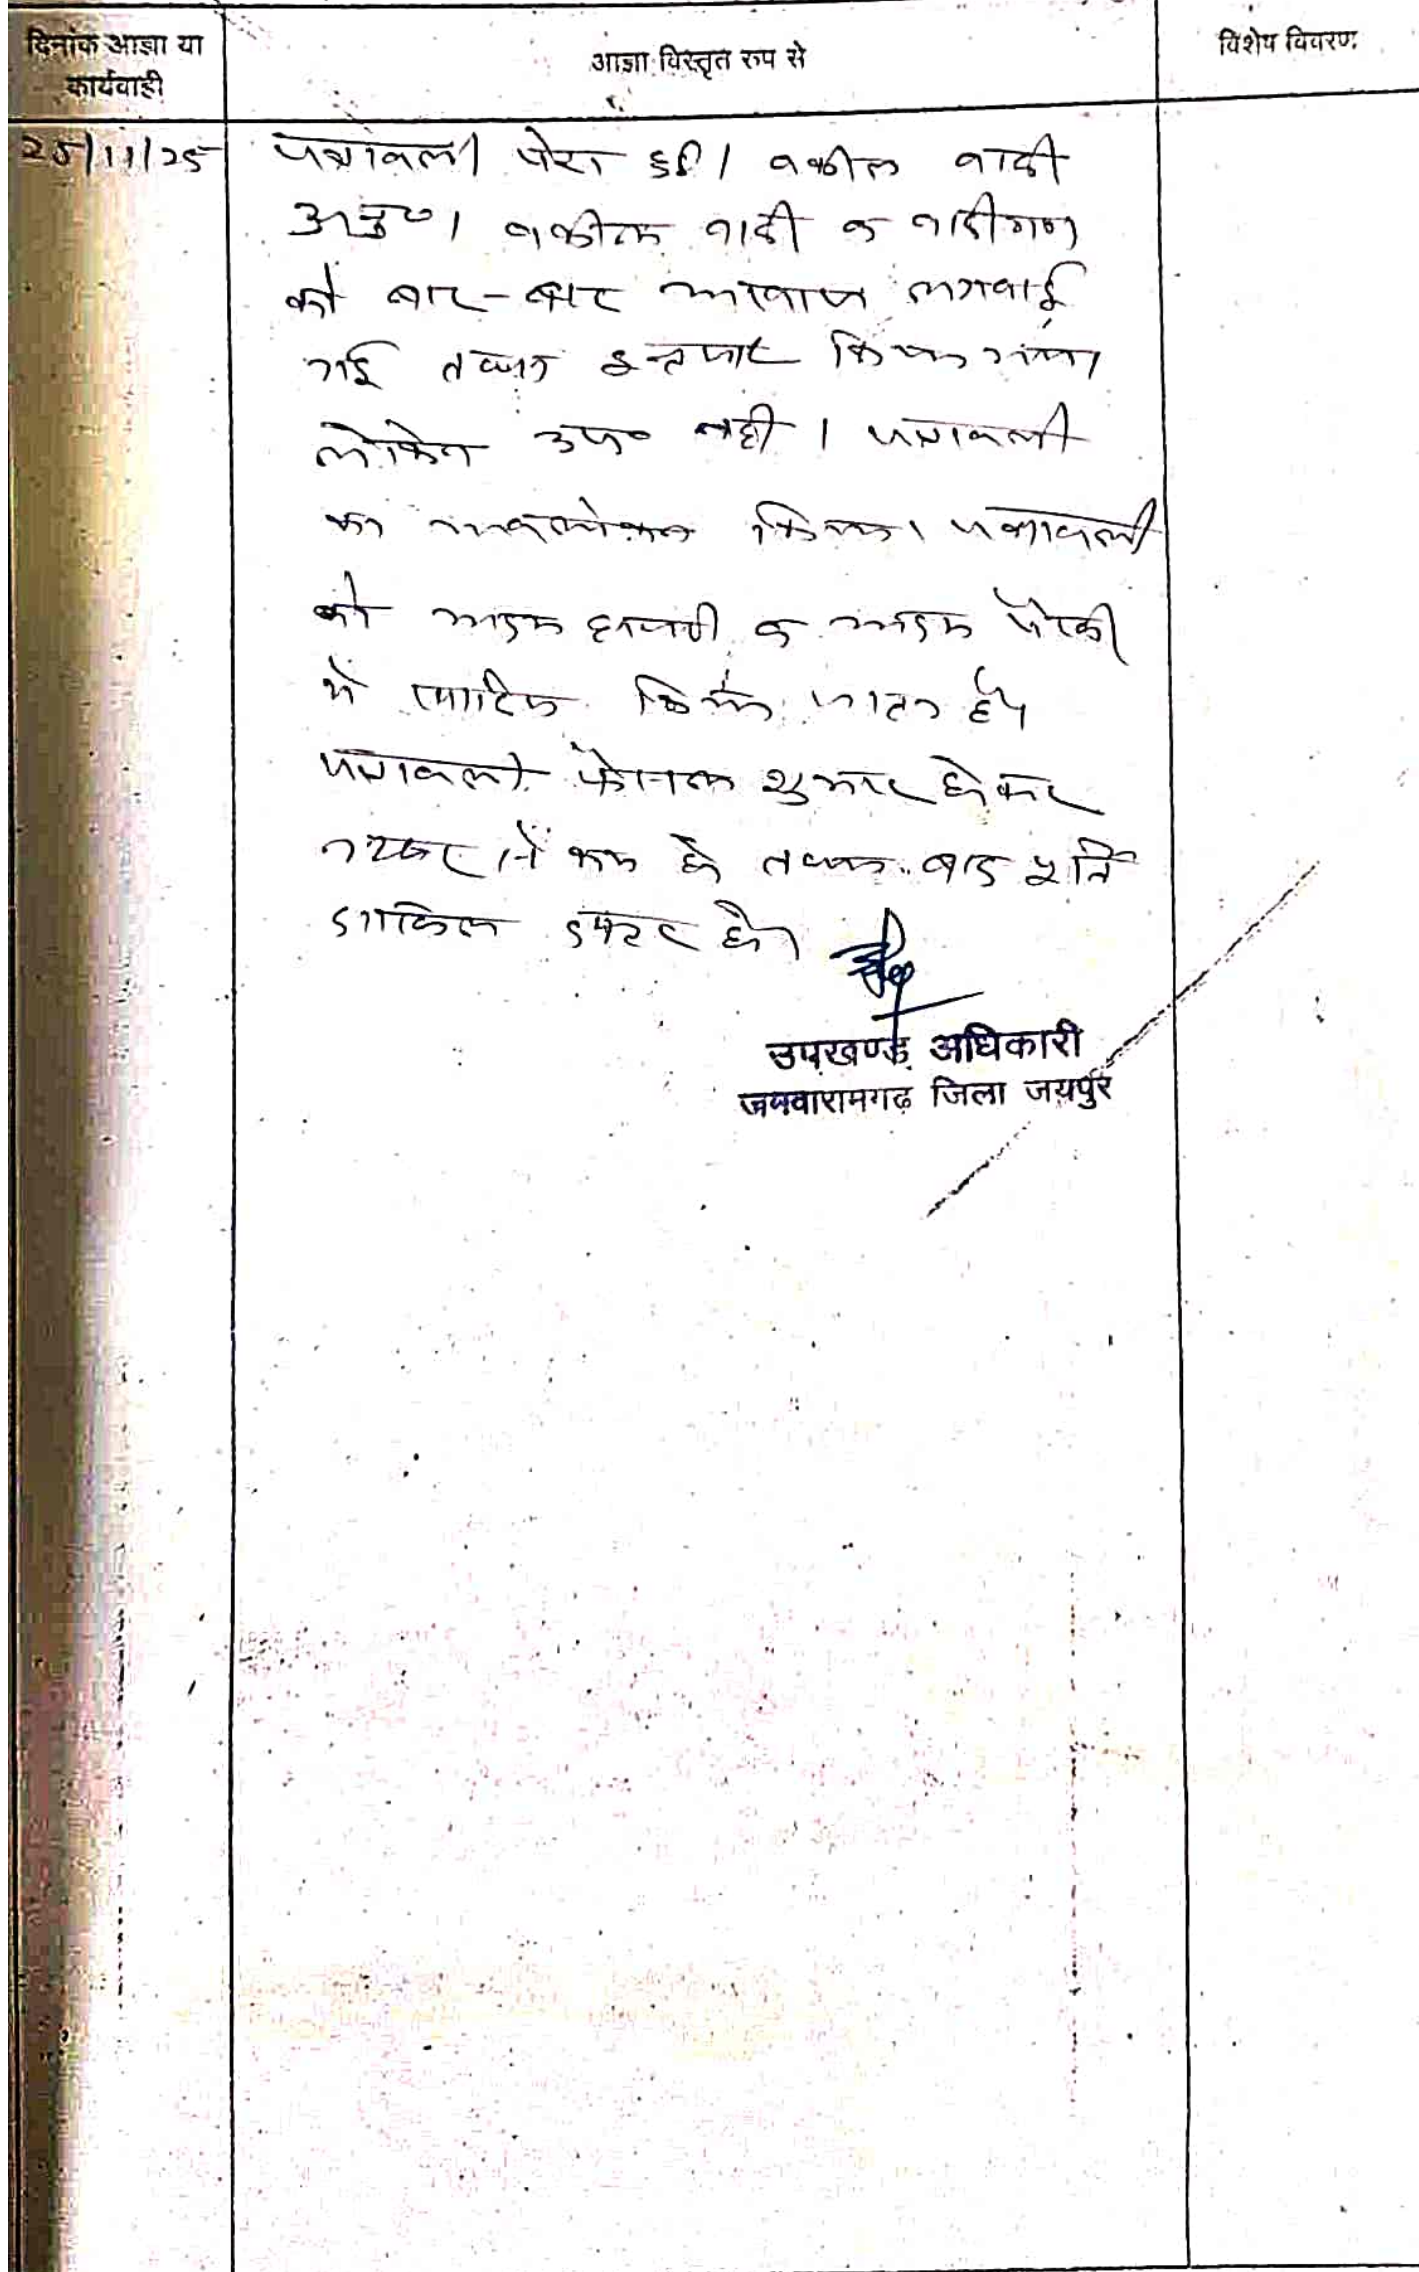 दिनांक आज्ञा या
कार्यवाही
आज्ञा विस्तृत रुप से
विशेष विवरण
25/11/25
पत्रावली पेश हुई। वकील वादी
अनु०। वकील वादी व वादीगण
को बार-बार आवाज लगवाई
गई तथा इन्तजार किया गया
लेकिन उप० नही। पत्रावली
का अवलोकन किया। पत्रावली
को अदम हाजरी व अदम पैरवी
में खारिज किया जाता है।
पत्रावली फैसल शुमार होकर
नम्बर से कम हो तथा बाद पूर्ति
दाखिल दफ्तर हो।
उपखण्ड अधिकारी
जमवारामगढ जिला जयपुर